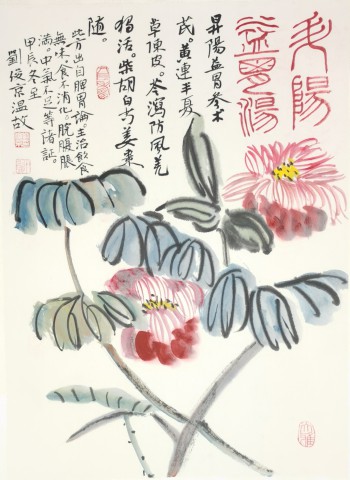 升陽
益胃湯
昇陽益胃參术
芪。黃連半夏
草陳皮。苓瀉防風羌
獨活。柴胡白芍姜棗
隨。
此方出自脾胃論。主治飲食
無味。食不消化。脘腹脹
滿。中氣不足等諸証。
甲辰冬至
劉後京溫故